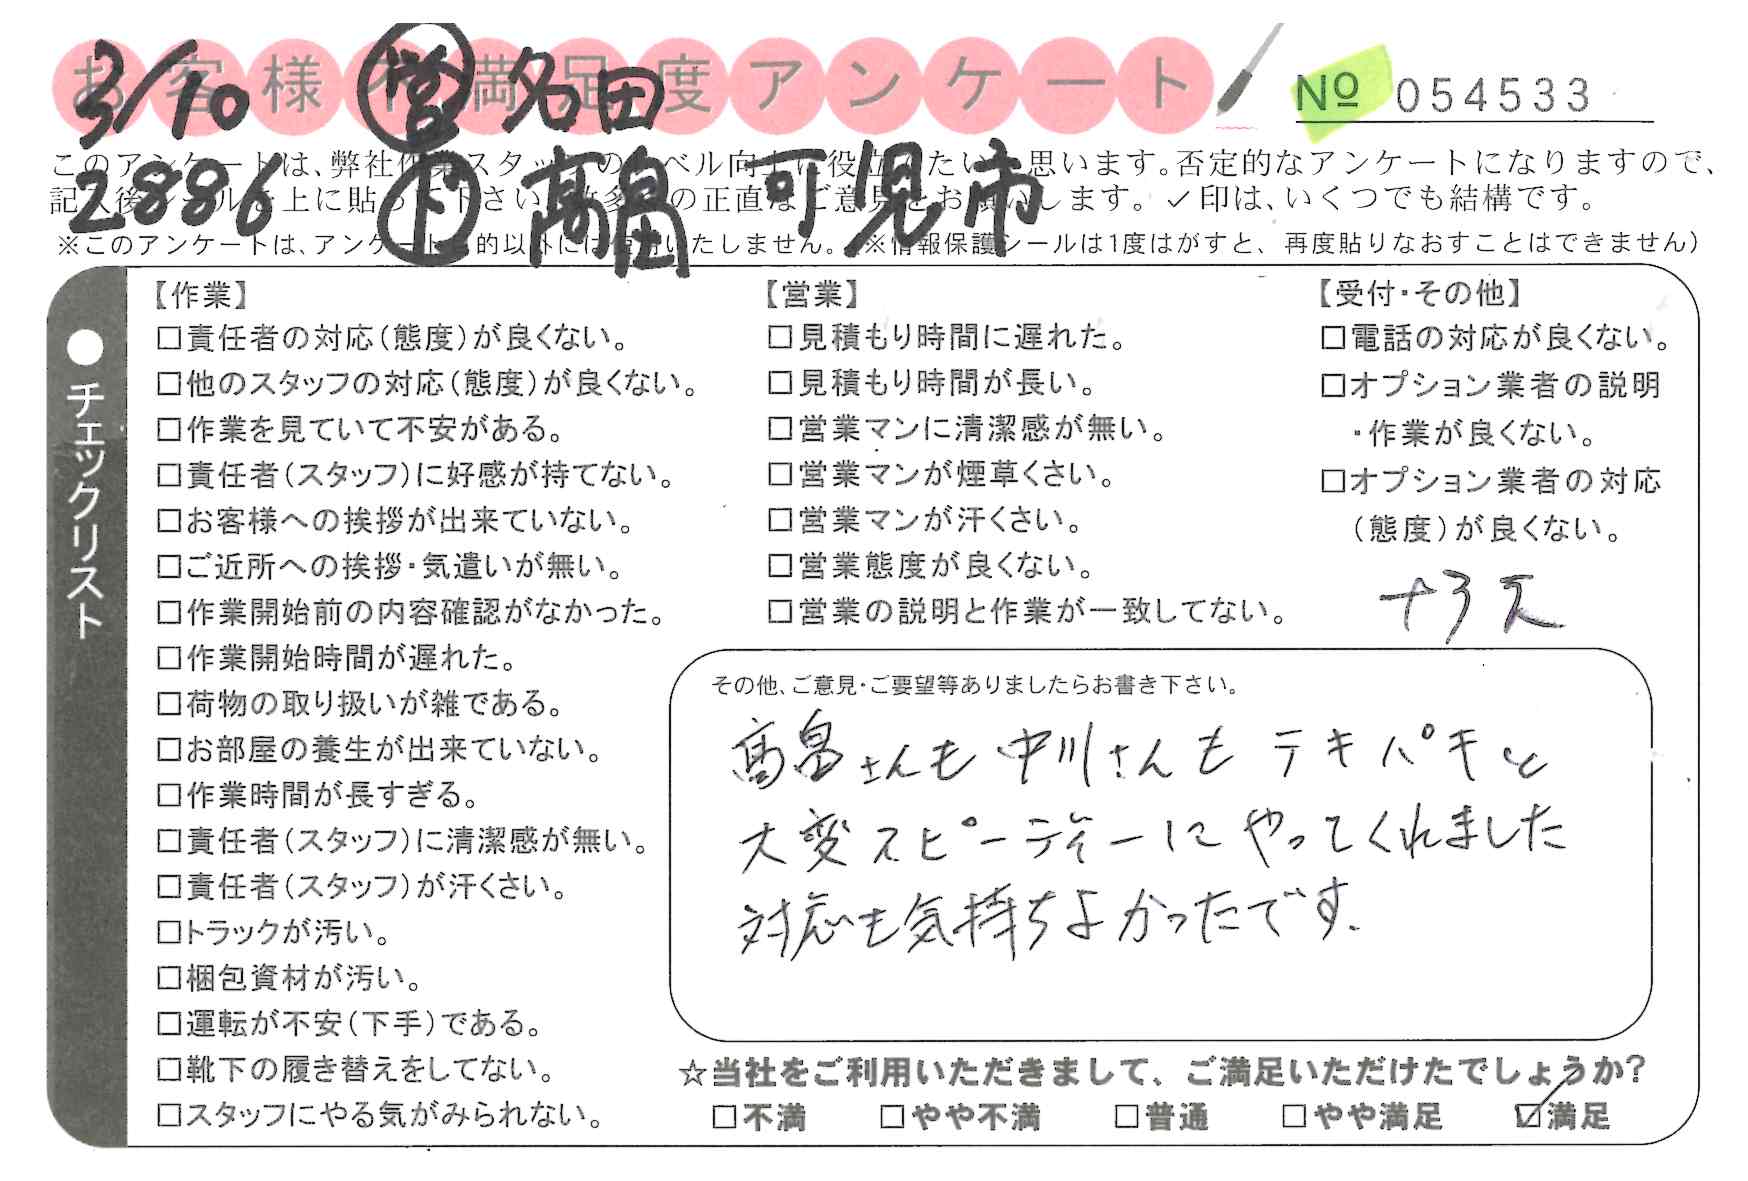 お客様不満足度アンケート
3/10 営 名田
No 054533
2886 ト 髙畠 可児市
このアンケートは、弊社作業スタッフのレベル向上に役立てたいと思います。否定的なアンケートになりますので、
記入後シールを上に貼って下さい。数多くの正直なご意見をお願いします。✓印は、いくつでも結構です。
※このアンケートは、アンケート目的以外には使用いたしません。(※情報保護シールは1度はがすと、再度貼りなおすことはできません)
●チェックリスト
【作業】
□責任者の対応(態度)が良くない。
□他のスタッフの対応(態度)が良くない。
□作業を見ていて不安がある。
□責任者(スタッフ)に好感が持てない。
□お客様への挨拶が出来ていない。
□ご近所への挨拶・気遣いが無い。
□作業開始前の内容確認がなかった。
□作業開始時間が遅れた。
□荷物の取り扱いが雑である。
□お部屋の養生が出来ていない。
□作業時間が長すぎる。
□責任者(スタッフ)に清潔感が無い。
□責任者(スタッフ)が汗くさい。
□トラックが汚い。
□梱包資材が汚い。
□運転が不安(下手)である。
□靴下の履き替えをしてない。
□スタッフにやる気がみられない。
【営業】
□見積もり時間に遅れた。
□見積もり時間が長い。
□営業マンに清潔感が無い。
□営業マンが煙草くさい。
□営業マンが汗くさい。
□営業態度が良くない。
□営業の説明と作業が一致してない。
【受付・その他】
□電話の対応が良くない。
□オプション業者の説明
・作業が良くない。
□オプション業者の対応
(態度)が良くない。
その他、ご意見・ご要望等ありましたらお書き下さい。
髙畠さんも中川さんもテキパキと
大変スピーディーにやってくれました
対応も気持ちよかったです.
☆当社をご利用いただきまして、ご満足いただけたでしょうか?
□不満 □やや不満 □普通 □やや満足 ☑満足